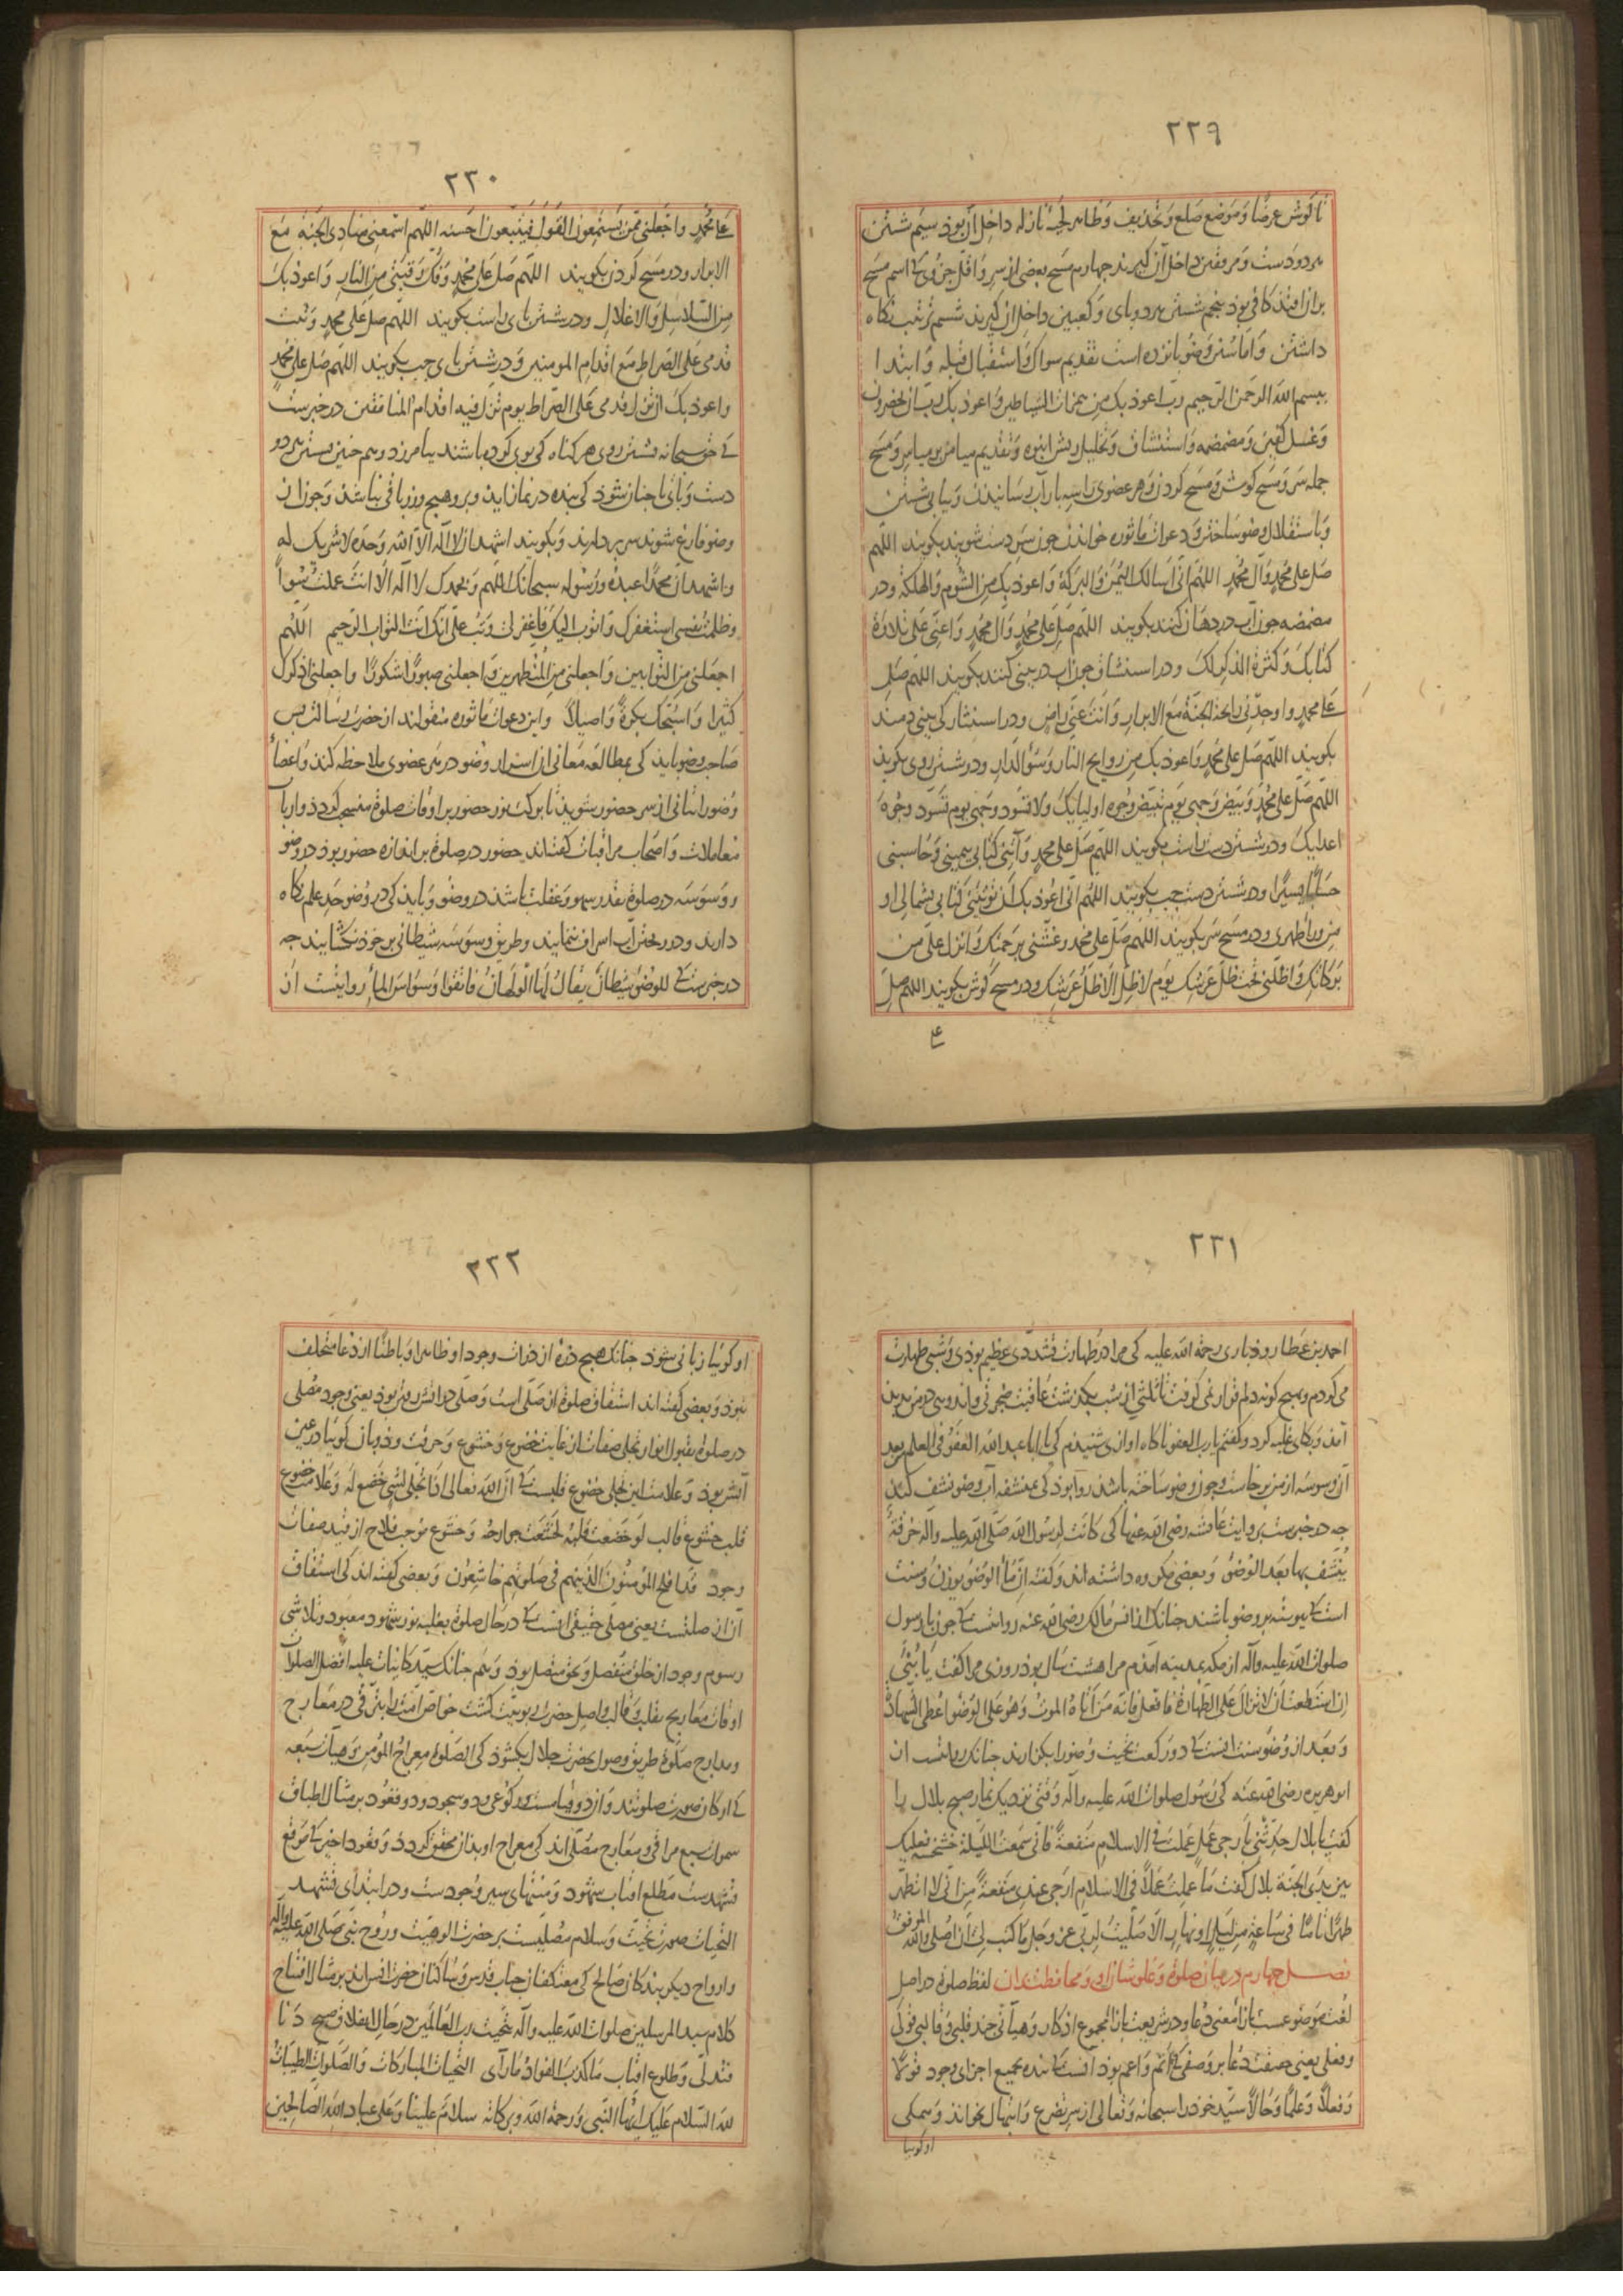 ٢٢٩
تا گوش عرضا و موضع صلع و تحذیف و ظاهر لحیهٔ نازله داخل آن بوذ سیم شستن
هر دو دست و مرفقین داخل آن گیرند جهارم مسح بعضی از سر و اقل جزوی که اسم مسح
بران افتد کافی بوذ پنجم شستن هر دو پای و کعبین داخل آن گیرند ششم ترتیب نگاه
داشتن و اما سنن وضو پانزده است تقدیم سواک و استقبال قبله و ابتدا
ببسم الله الرحمن الرحیم رب اعوذ بک من همزات الشیاطین و اعوذ بک رب ان یحضرون
و غسل کفین و مضمضه و استنشاق و تخلیل ریش انبوه و تقدیم میامن بر میاسر و مسح
جمله سر و مسح گوش و مسح کردن و هر عضوی را سه بار آب رسانیدن و پیاپی شستن
و باستقلال وضو ساختن و دعوات ماثوره خواندن جون سر دست شویند بگویند اللهم
صل علی محمد و آل محمد اللهم انی اسالک الیمن و البرکة و اعوذ بک من الشوم و الهلکة و در
مضمضه جون آب در دهان کنند بگویند اللهم صل علی محمد و آل محمد و اعنی علی تلاوة
کتابک و کثرة الذکر لک و در استنشاق جون آب در بینی کنند بگویند اللهم صل
علی محمد و اوجدنی رایحة الجنة مع الابرار و انت عنی راض و در استنثار کی بینی دمند
بگویند اللهم صل علی محمد و اعوذ بک من روایح النار و سوء الدار و در شستن روی بگویند
اللهم صل علی محمد و بیض وجهی یوم تبیض وجوه اولیایک و لا تسود وجهی یوم تسود وجوه
اعدایک و در شستن دست راست بگویند اللهم صل علی محمد و آتنی کتابی بیمینی و حاسبنی
حسابا یسیرا و در شستن دست جب بگویند اللهم انی اعوذ بک ان توتینی کتابی بشمالی او
من وراء ظهری و در مسح سر بگویند اللهم صل علی محمد و غشنی برحمتک و انزل علی من
برکاتک و اظلنی تحت ظل عرشک یوم لا ظل الا ظل عرشک و در مسح گوش بگویند اللهم صل
علی
٢٣٠
علی محمد و اجعلنی ممن یستمعون القول فیتبعون احسنه اللهم اسمعنی منادی الجنة مع
الابرار و در مسح گردن بگویند اللهم صل علی محمد و فک رقبتی من النار و اعوذ بک
من السلاسل و الاغلال و در شستن پای راست بگویند اللهم صل علی محمد و ثبت
قدمی علی الصراط مع اقدام المومنین و در شستن پای جب بگویند اللهم صل علی محمد
و اعوذ بک ان تزل قدمی علی الصراط یوم تزل فیه اقدام المنافقین در خبرست
که حق سبحانه بشستن روی هر گناه کی بوی کرده باشند بیامرزد و هم جنین بشستن هر دو
دست و پای تا جنان شوذ کی بنده در نماز آید و برو هیج وزر باقی نباشذ و جون از
وضو فارغ شوند سر بردارند و بگویند اشهد ان لا اله الا الله وحده لا شریک له
و اشهد ان محمدا عبده و رسوله سبحانک اللهم و بحمدک لا اله الا انت عملت سوءا
و ظلمت نفسی استغفرک و اتوب الیک فاغفر لی و تب علی انک انت التواب الرحیم اللهم
اجعلنی من التوابین و اجعلنی من المتطهرین و اجعلنی صبورا شکورا و اجعلنی اذکرک
کثیرا و اسبحک بکرة و اصیلا و این دعوات ماثوره منقولند از حضرت رسالت پس
صاحب وضو بایذ کی بمطالعه معانی آن اسرار وضو در هر عضوی ملاحظه کنذ و اعضاء
وضو را بتانی از سر حضور بشویذ تا برکت نور حضور بر اوقات صلوة منسحب گردد و ارباب
معاملات و اصحاب مراقبات گفته‌اند حضور در صلوة بر اندازه حضور بوذ در وضو
و وسوسه در صلوة بقدر سهو و غفلت باشذ در وضو و بایذ کی در وضو حد علم نگاه
دارند و در ریختن آب اسراف ننمایند و طریق وسوسه شیطانی بر خوذ نگشایند جه
در خبرست که للوضوء شیطان یقال لها الولهان فاتقوا وسواس الماء روایتست از
٢٣١
احمد بن عطار روذباری رحمة الله علیه کی مرا در طهارت تشددی عظیم بوذی و شبی طهارت
می کردم و هیج گونه دلم قرار نمی گرفت تا ثلثی از شب بگذشت عاقبت ضجرتی و اندوهی در من پدید
آمد و بکای غلبه کرد و گفتم یا رب العفو ناگاه اوازی شنیدم کی یا ابا عبد الله العفو فی العلم بعد
آن وسوسه از من برخاست و جون وضو ساخته باشذ روا بوذ کی بمنشفه آب وضو نشف کند
جه در خبرست بروایت عایشه رضی الله عنها کی کانت لرسول الله صلی الله علیه و آله خرقة
ینشف بها بعد الوضوء و بعضی مکروه داشته‌اند و گفته ان ماء الوضوء یوزن و سنت
است که پیوسته بر وضو باشند جنانک از انس مالک رضی الله عنه روایتست که جون با رسول
صلوات الله علیه و آله از مکه بمدینه آمدم مرا هشت سال بوذ روزی مرا گفت یا بنی
ان استطعت ان لا تزال علی الطهارة فافعل فانه من اتاه الموت و هو علی الوضوء اعطی الشهادة
و بعد از وضو سنت آنست که دو رکعت تحیت وضو را بگزارند جنانک روایتست از
ابو هریره رضی الله عنه کی رسول صلوات الله علیه و آله وقتی نزدیک نماز صبح بلال را
گفت یا بلال حدثنی بارجی عمل عملت فی الاسلام منفعة فانی سمعت اللیلة خشخشة نعلیک
بین یدی الجنة بلال گفت ما عملت عملا فی الاسلام ارجی عندی منفعة من انی لا اتطهر
طهرا تاما فی ساعة من لیل او نهار الا صلیت لربی عز و جل ما کتب لی ان اصلی و الله الموفق
فصل جهارم در بیان صلوة و علو شان او و محافظت بدان لفظ صلوة در اصل
لغت موضوعست بازاء معنی دعا و در شریعت بازاء مجموع اذکار و هیآتی جند قلبی و قالبی قولی
و فعلی یعنی حقیقت دعا بر وصفی که اتم و اعم بوذ آنست که بنده بجمیع اجزای وجود قولا
و فعلا و علما و حالا سید خوذ را سبحانه و تعالی از سر تضرع و ابتهال بخواند و همگی
او گویا
٢٣٢
او گویا زبانی شوذ جنانک هیج ذره از ذرات وجود او ظاهرا و باطنا از دعا متخلف
نبوذ و بعضی گفته‌اند اشتقاق صلوة از صلی است و صلی در آتش رفتن بوذ یعنی وجود مصلی
در صلوة بقبول انوار تجلی صفات از غایت خضوع و خشوع و حرقت و ذوبان گویا در عین
آتش بوذ و علامت این تجلی خضوع قلبست که ان الله تعالی اذا تجلی لشی خضع له و علامت خضوع
قلب خشوع قالب لو خضعت قلبه لخشعت جوارحه و خشوع موجب فلاح از قید صفات
وجود قد افلح المؤمنون الذین هم فی صلوتهم خاشعون و بعضی گفته‌اند کی اشتقاق
آن از صلتست یعنی مصلی حقیقی آنست که در حال صلوة بغلبه نور شهود معبود و تلاشی
رسوم وجود از خلق منفصل و بحق متصل بوذ و هم جنانک سید کاینات علیه افضل الصلوات
اوقات معاریج بقلب و قالب واصل حضرت ربوبیت گشت خواص امت را بترقی در معارج
و مدارج صلوة طریق وصول بحضرت جلال بگشوذ کی الصلوة معراج المؤمن و هیآت سبعه
که ارکان صورت صلوتند و از دو قیامست و رکوعی و دو سجود و دو قعود بر مثال اطباق
سموات سبع مراقی و معارج مصلی‌اند کی معراج او بذان محقق گردد و قعود اخیر که موقع
تشهدست مطلع آفتاب شهود و منتهای سیر وجودست و در ابتدای تشهد
التحیات صورت تحیت و سلام مصلیست بر حضرت الوهیت و روح نبی صلی الله علیه و آله
و ارواح دیگر بندگان صالح کی معتکفان جناب قدس و ساکنان حضرت انس‌اند بر مثال افتتاح
کلام سید المرسلین صلوات الله علیه و آله بتحیت رب العالمین در حال انفلاق صبح دنا
فتدلی و طلوع افتاب ما کذب الفواد ما رآی التحیات المبارکات و الصلوات الطیبات
لله السلام علیک ایها النبی و رحمة الله و برکاته سلام علینا و علی عباد الله الصالحین